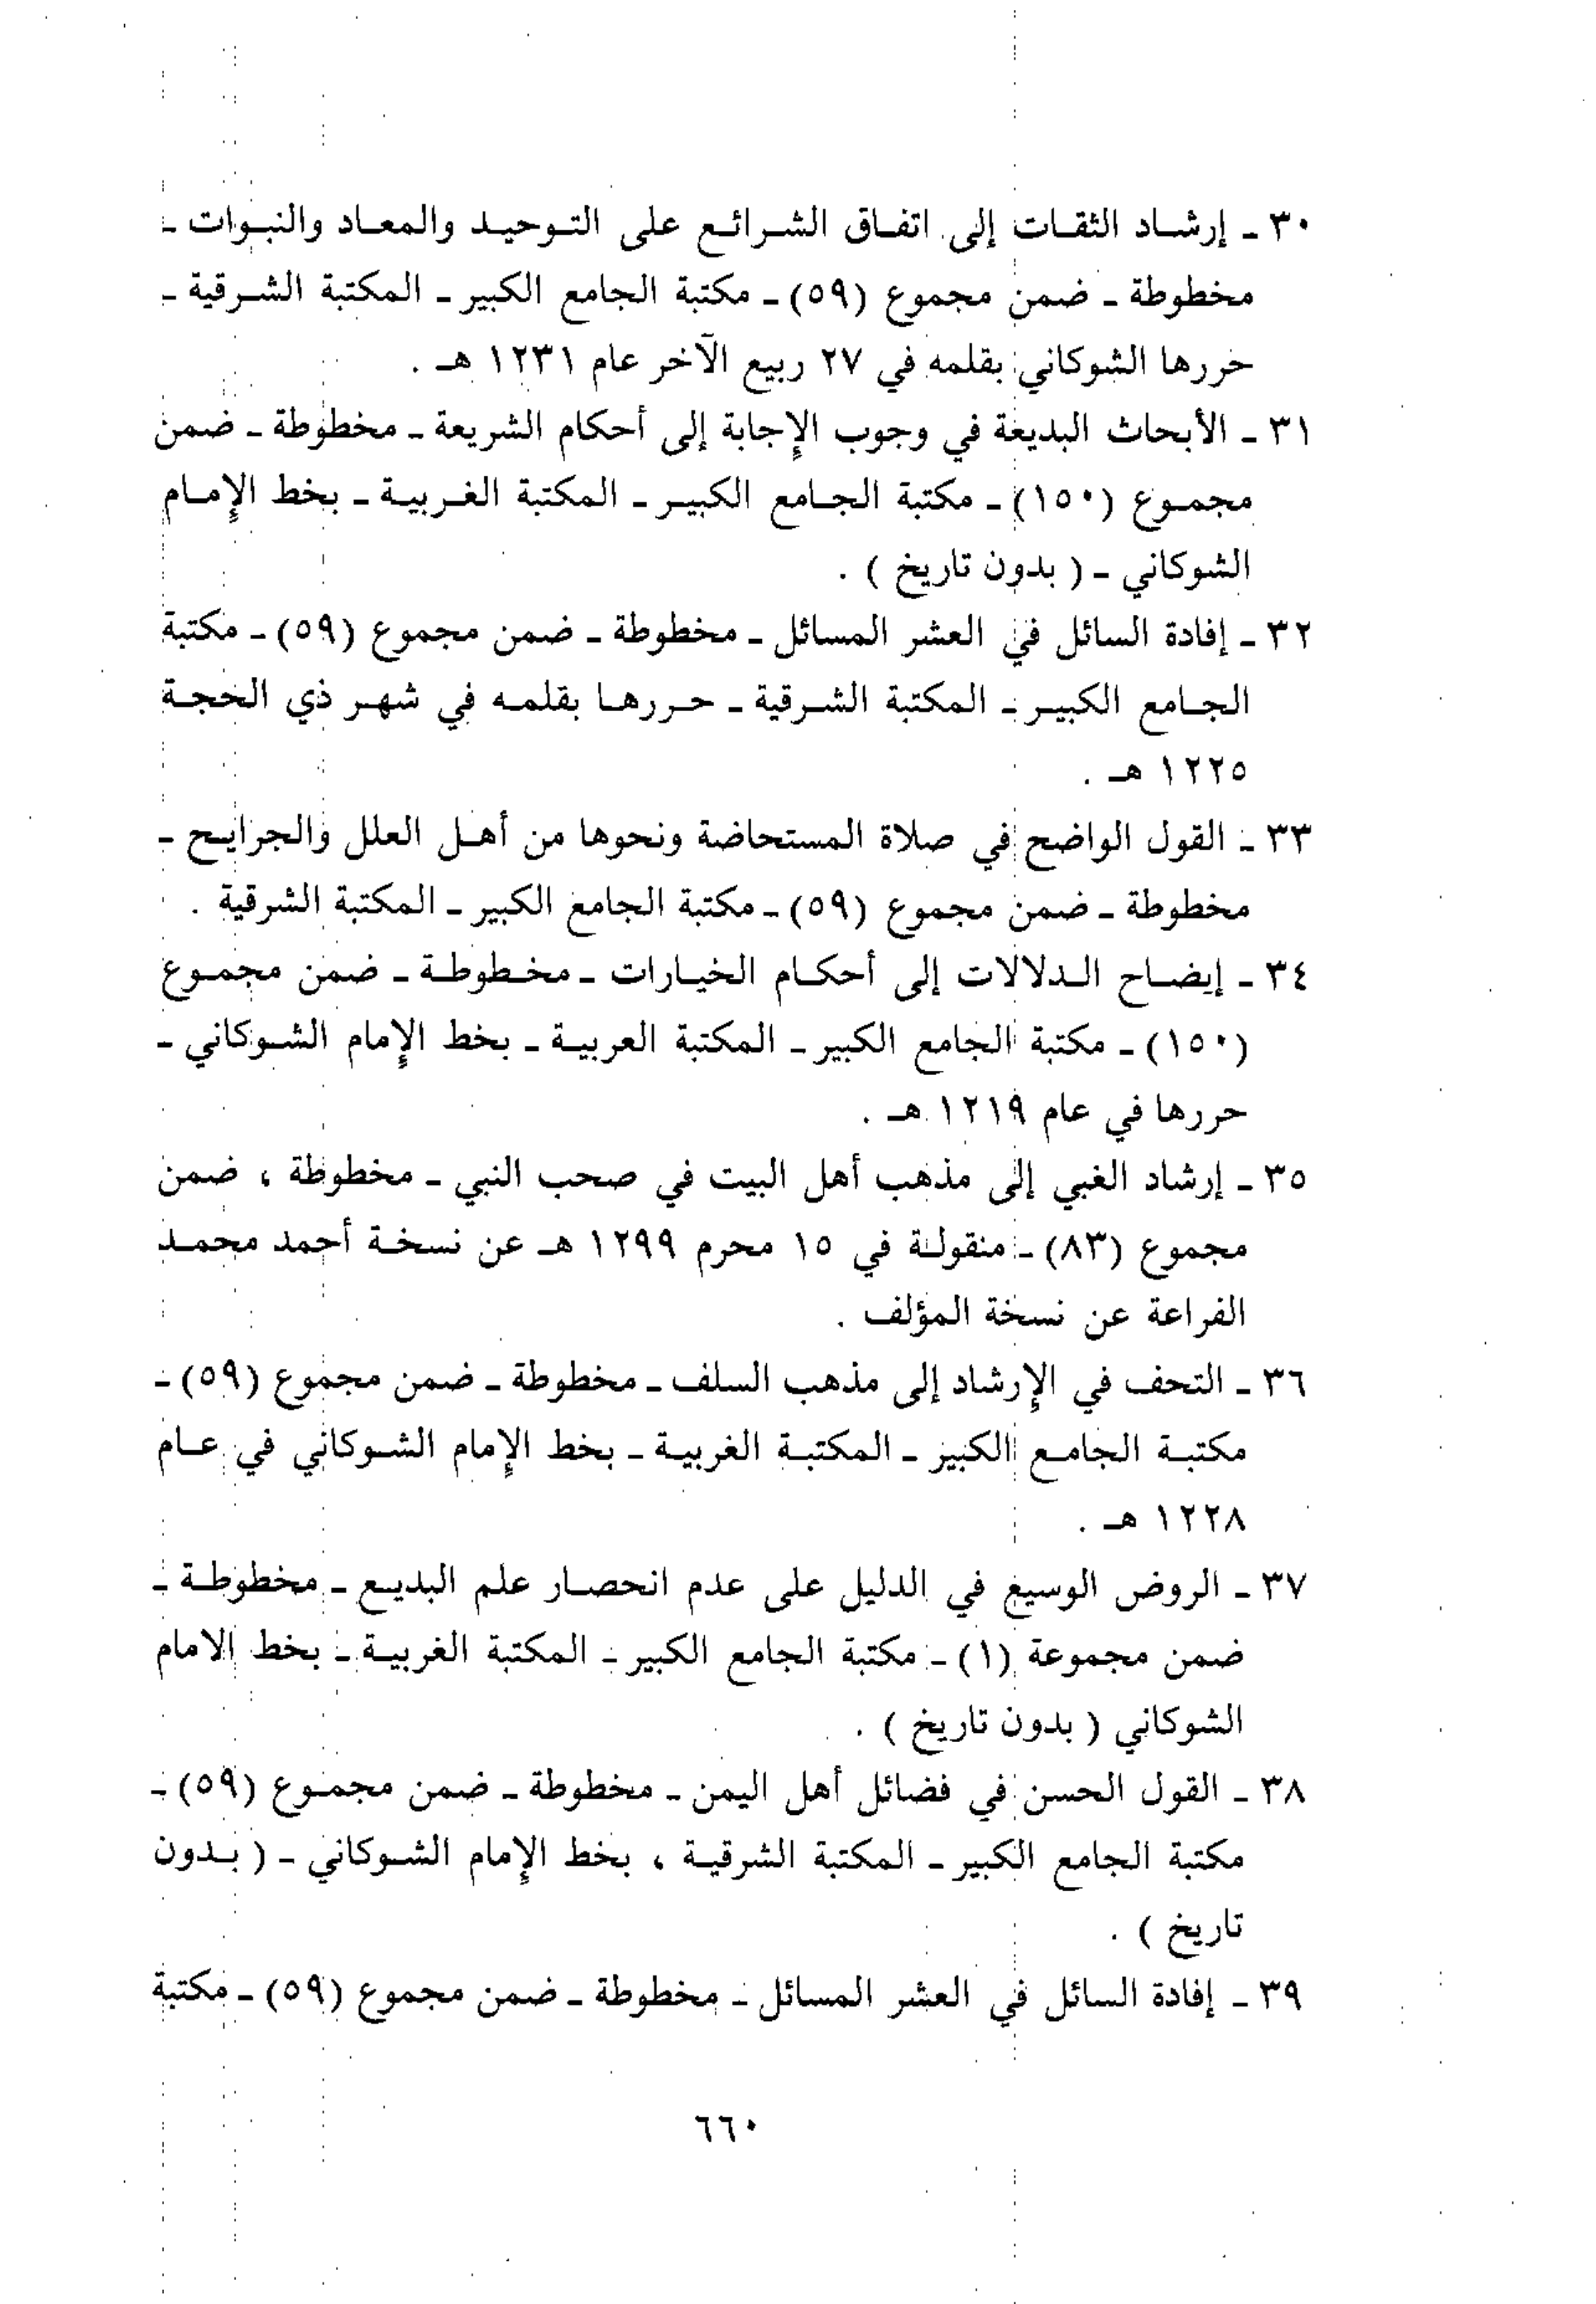 ٣٠ ـ إرشاد الثقات إلى اتفاق الشرائع على التوحيد والمعاد والنبوات ـ
مخطوطة ـ ضمن مجموع (٥٩) ـ مكتبة الجامع الكبير ـ المكتبة الشرقية ـ
حررها الشوكاني بقلمه في ٢٧ ربيع الآخر عام ١٢٣١ هـ .
٣١ ـ الأبحاث البديعة في وجوب الإجابة إلى أحكام الشريعة ـ مخطوطة ـ ضمن
مجموع (١٥٠) ـ مكتبة الجامع الكبير ـ المكتبة الغربية ـ بخط الإمام
الشوكاني ـ ( بدون تاريخ ) .
٣٢ ـ إفادة السائل في العشر المسائل ـ مخطوطة ـ ضمن مجموع (٥٩) ـ مكتبة
الجامع الكبير ـ المكتبة الشرقية ـ حررها بقلمه في شهر ذي الحجة
١٢٢٥ هـ .
٣٣ ـ القول الواضح في صلاة المستحاضة ونحوها من أهل العلل والجرايح ـ
مخطوطة ـ ضمن مجموع (٥٩) ـ مكتبة الجامع الكبير ـ المكتبة الشرقية .
٣٤ ـ إيضاح الدلالات إلى أحكام الخيارات ـ مخطوطة ـ ضمن مجموع
(١٥٠) ـ مكتبة الجامع الكبير ـ المكتبة العربية ـ بخط الإمام الشوكاني ـ
حررها في عام ١٢١٩ هـ .
٣٥ ـ إرشاد الغبي إلى مذهب أهل البيت في صحب النبي ـ مخطوطة ، ضمن
مجموع (٨٣) ـ منقولة في ١٥ محرم ١٢٩٩ هـ عن نسخة أحمد محمد
الفراعة عن نسخة المؤلف .
٣٦ ـ التحف في الإرشاد إلى مذهب السلف ـ مخطوطة ـ ضمن مجموع (٥٩) ـ
مكتبة الجامع الكبير ـ المكتبة الغربية ـ بخط الإمام الشوكاني في عام
١٢٢٨ هـ .
٣٧ ـ الروض الوسيع في الدليل على عدم انحصار علم البديع ـ مخطوطة ـ
ضمن مجموعة (١) ـ مكتبة الجامع الكبير ـ المكتبة الغربية ـ بخط الامام
الشوكاني ( بدون تاريخ ) .
٣٨ ـ القول الحسن في فضائل أهل اليمن ـ مخطوطة ـ ضمن مجموع (٥٩) ـ
مكتبة الجامع الكبير ـ المكتبة الشرقية ، بخط الإمام الشوكاني ـ ( بدون
تاريخ ) .
٣٩ ـ إفادة السائل في العشر المسائل ـ مخطوطة ـ ضمن مجموع (٥٩) ـ مكتبة
٦٦٠